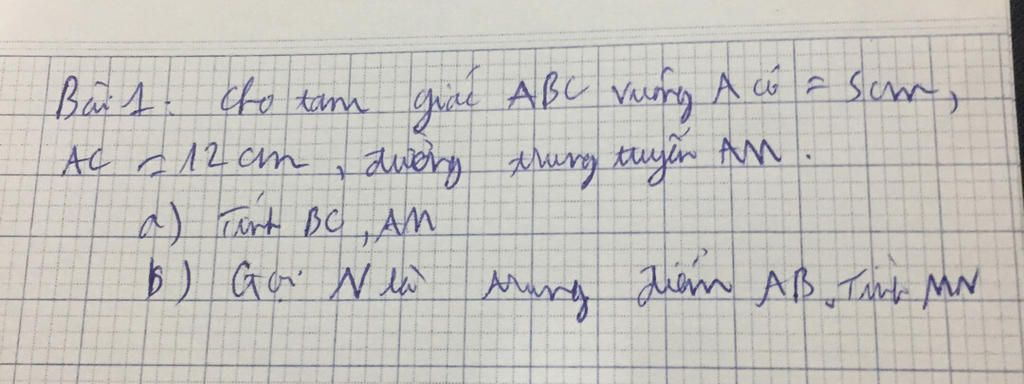 Bài 1: Cho tam giác ABC vuông A có = 5cm,
AC = 12 cm, đường trung tuyến AM.
a) Tính BC, AM
b) Gọi N là trung điểm AB. Tính MN